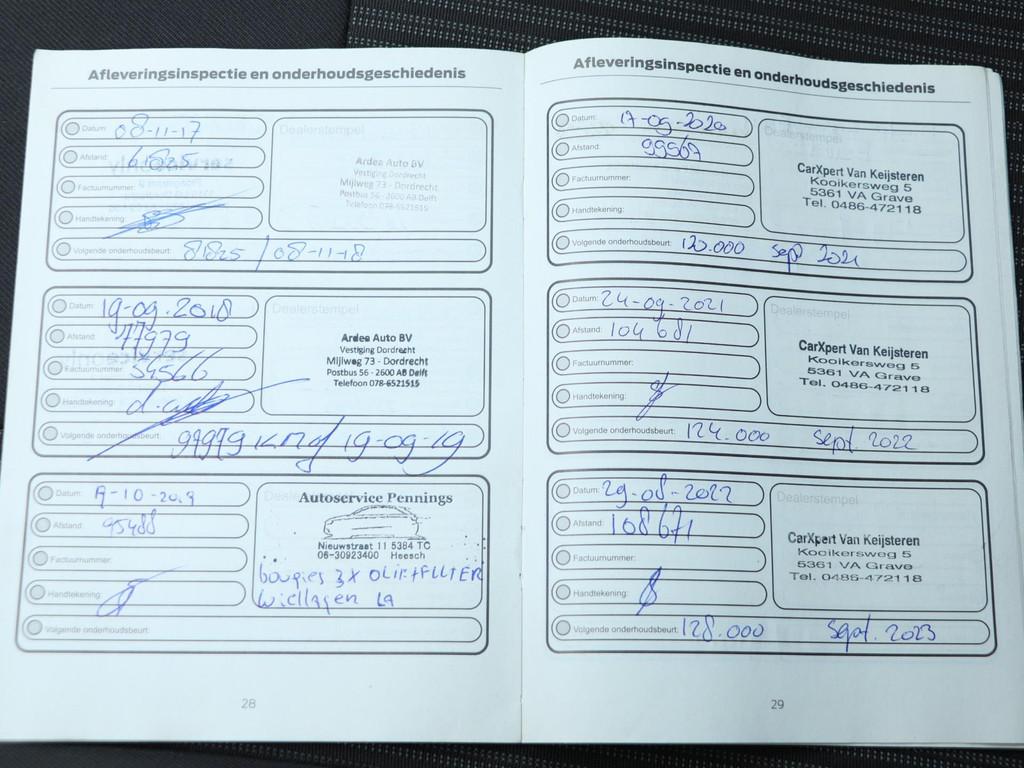 Afleveringsinspectie en onderhoudsgeschiedenis
Datum: 08-11-17
Afstand: 61825
Factuurnummer:
Handtekening:
Volgende onderhoudsbeurt: 81825 / 08-11-18
Dealerstempel
Ardea Auto BV
Vestiging Dordrecht
Mijlweg 73 - Dordrecht
Postbus 56 - 2600 AB Delft
Telefoon 078-6521515
Datum: 19-09-2018
Afstand: 77979
Factuurnummer: 54566
Handtekening:
Volgende onderhoudsbeurt: 99979 km / 19-09-19
Dealerstempel
Ardea Auto BV
Vestiging Dordrecht
Mijlweg 73 - Dordrecht
Postbus 56 - 2600 AB Delft
Telefoon 078-6521515
Datum:
Afstand: 95488
Factuurnummer:
Handtekening:
Volgende onderhoudsbeurt:
Autoservice Pennings
Nieuwstraat 11 5384 TC
06-30923400 Heesch
bougies 3X OLIE+FILTER
wiellagen LA
28
Afleveringsinspectie en onderhoudsgeschiedenis
Datum: 17-09-2020
Afstand: 99567
Factuurnummer:
Handtekening:
Volgende onderhoudsbeurt: 120.000 sept 2021
Dealerstempel
CarXpert Van Keijsteren
Kooikersweg 5
5361 VA Grave
Tel. 0486-472118
Datum: 24-09-2021
Afstand: 104681
Factuurnummer:
Handtekening:
Volgende onderhoudsbeurt: 124.000 sept. 2022
Dealerstempel
CarXpert Van Keijsteren
Kooikersweg 5
5361 VA Grave
Tel. 0486-472118
Datum: 29-08-2022
Afstand: 108671
Factuurnummer:
Handtekening:
Volgende onderhoudsbeurt: 128.000 sept. 2023
Dealerstempel
CarXpert Van Keijsteren
Kooikersweg 5
5361 VA Grave
Tel. 0486-472118
29